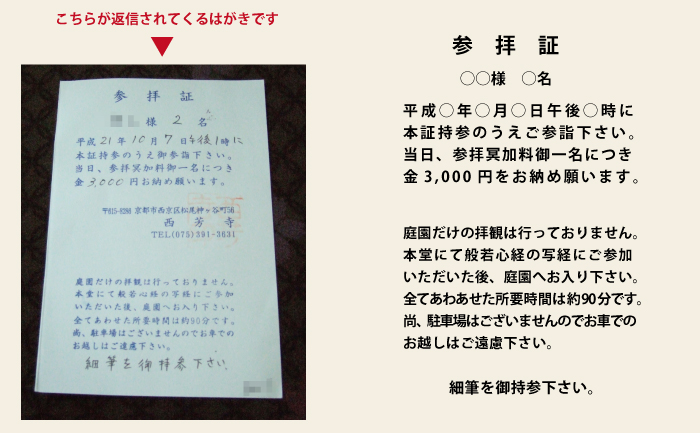 こちらが返信されてくるはがきです
参拝証
様 2 名
平成 21 年 10 月 7 日午後 1 時に
本証持参のうえ御参詣下さい。
当日、参拝冥加料御一名につき
金 3,000 円お納め願います。
〒615-8286 京都市西京区松尾神ヶ谷町56
西芳寺
TEL(075)391-3631
庭園だけの拝観は行っておりません。
本堂にて般若心経の写経にご参加
いただいた後、庭園へお入り下さい。
全てあわせた所要時間は約90分です。
尚、駐車場はございませんのでお車での
お越しはご遠慮下さい。
細筆を御持参下さい。
参 拝 証
○○様 ○名
平成○年○月○日午後○時に
本証持参のうえご参詣下さい。
当日、参拝冥加料御一名につき
金 3,000 円をお納め願います。
庭園だけの拝観は行っておりません。
本堂にて般若心経の写経にご参加
いただいた後、庭園へお入り下さい。
全てあわせた所要時間は約90分です。
尚、駐車場はございませんのでお車での
お越しはご遠慮下さい。
細筆を御持参下さい。